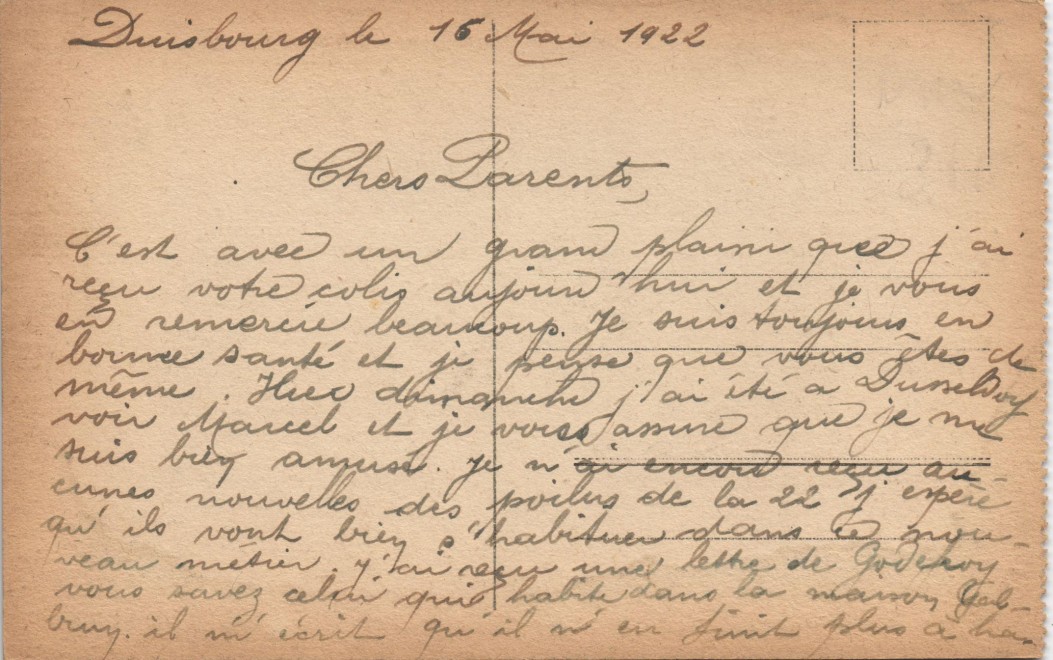 Duisbourg le 15 Mai 1922
Chers Parents,
C'est avec un grand plaisir que j'ai
reçu votre colis aujourd'hui et je vous
en remercie beaucoup. Je suis toujours en
bonne santé et je pense que vous êtes de
même. Hier dimanche j'ai été a Dusseldorf
voir Marcel et je vous assure que je me
suis bien amusé. Je n'ai encore reçu au
cunes nouvelles des poilus de la 22 j'espère
qu'ils vont bien s'habituer dans le nou-
veau métier. J'ai reçu une lettre de Godefroy
vous savez celui qui habite dans la maison
il m'écrit qu'il n'en finit plus à